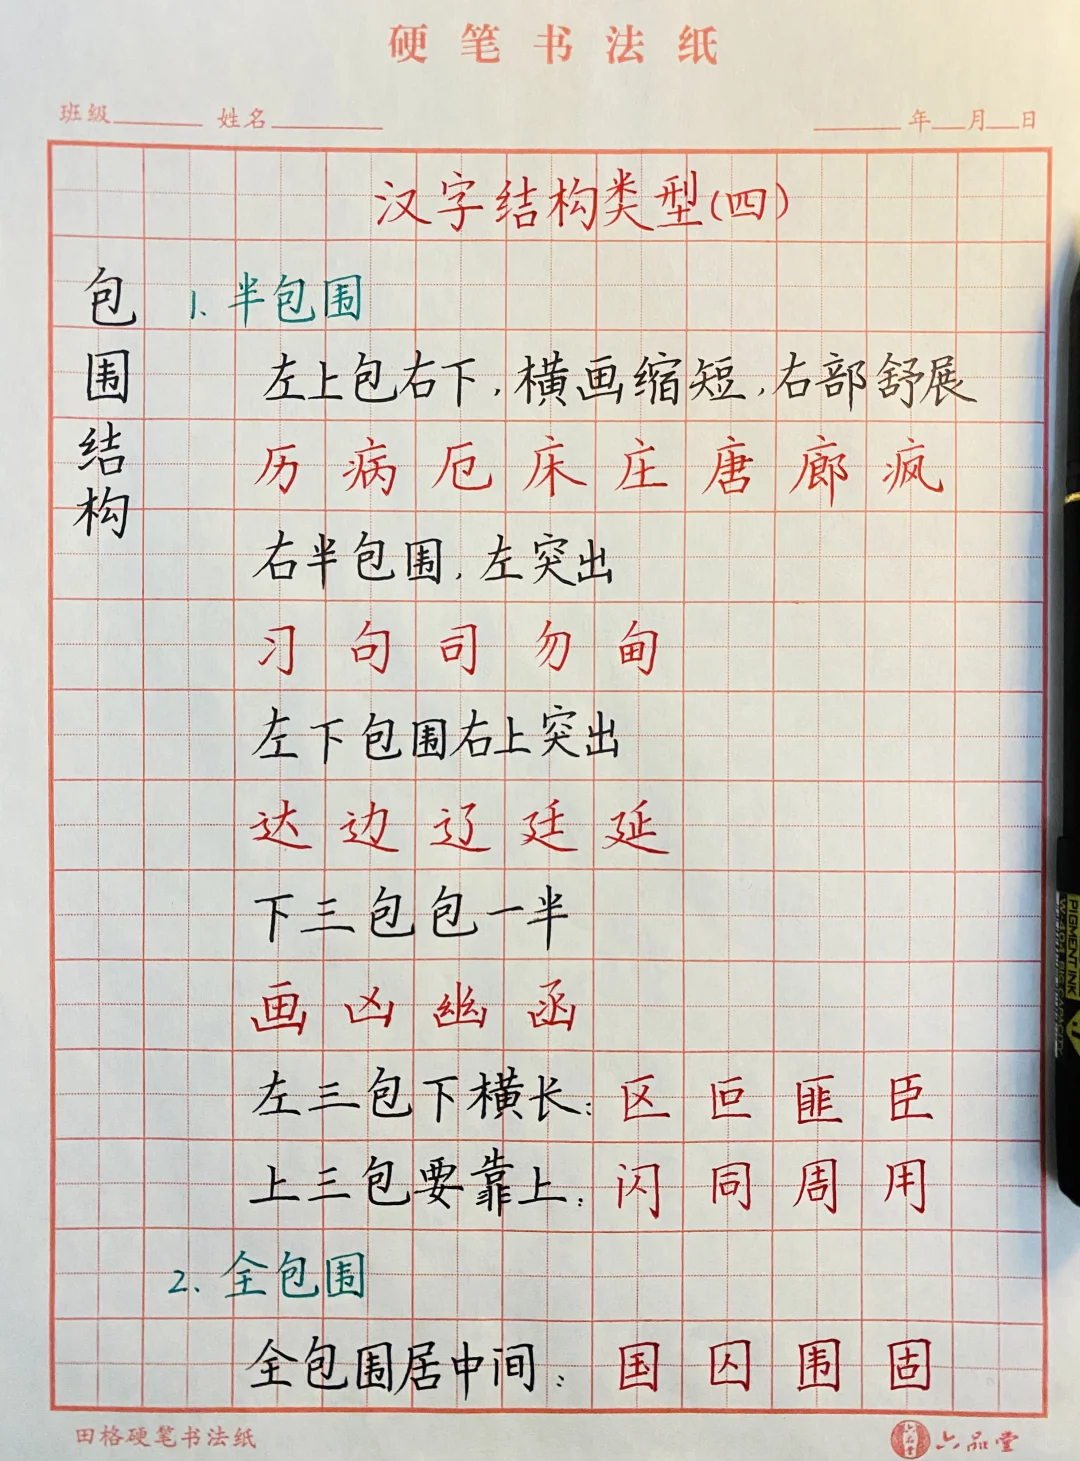 硬笔书法纸
班级 姓名 年 月 日
汉字结构类型(四)
包围结构
1、半包围
左上包右下,横画缩短,右部舒展
历 病 厄 床 庄 唐 廊 疯
右半包围,左突出
习 句 司 勿 甸
左下包围右上突出
达 边 辽 廷 延
下三包包一半
画 凶 幽 函
左三包下横长: 区 叵 匪 臣
上三包要靠上: 闪 同 周 用
2、全包围
全包围居中间: 国 囚 围 固
田格硬笔书法纸
六品堂 六品堂
PIGMENT INK